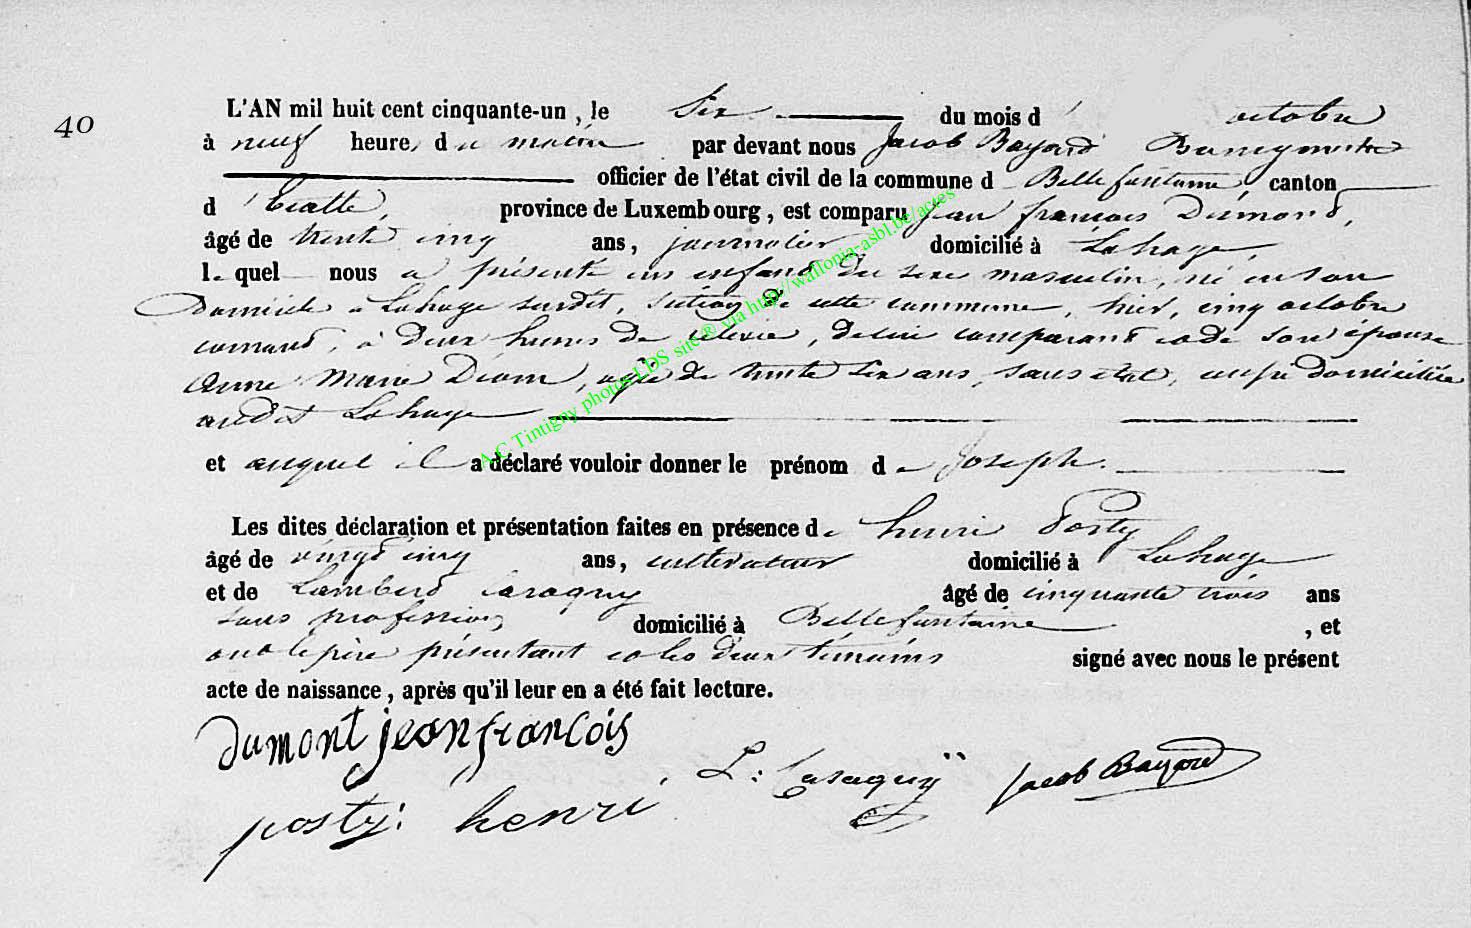 40
L'AN mil huit cent cinquante-un, le Six du mois d' octobre
à neuf heures du matin par devant nous Jacob Bayard Bourgmestre
officier de l'état civil de la commune de Bellefontaine, canton
d'Etalle, province de Luxembourg, est comparu Jean françois Dumond,
âgé de trente cinq ans, journalier domicilié à Lahage,
lequel nous a présenté un enfant du sexe masculin, né en son
Domicile à Lahage susdit, section de cette commune, hier, cinq octobre
courant, à deux heures de relevée, de lui comparant et de son épouse
Anne Marie Diom, agée de trente six ans, sans état, aussi domiciliée
audit Lahage
et auquel il a déclaré vouloir donner le prénom de Joseph.
Les dites déclaration et présentation faites en présence de henri Posty
âgé de vingt cinq ans, cultivateur domicilié à Lahage
et de Lambert Casaquy âgé de cinquante trois ans
sans profession, domicilié à Bellefontaine, et
ont le père présentant et les deux témoins signé avec nous le présent
acte de naissance, après qu'il leur en a été fait lecture.
dumont jean françois
L: Casaquÿ Jacob Bayard
posty: henri
A.C Tintigny photos LDS site ® via http://wallonia-asbl.be/actes